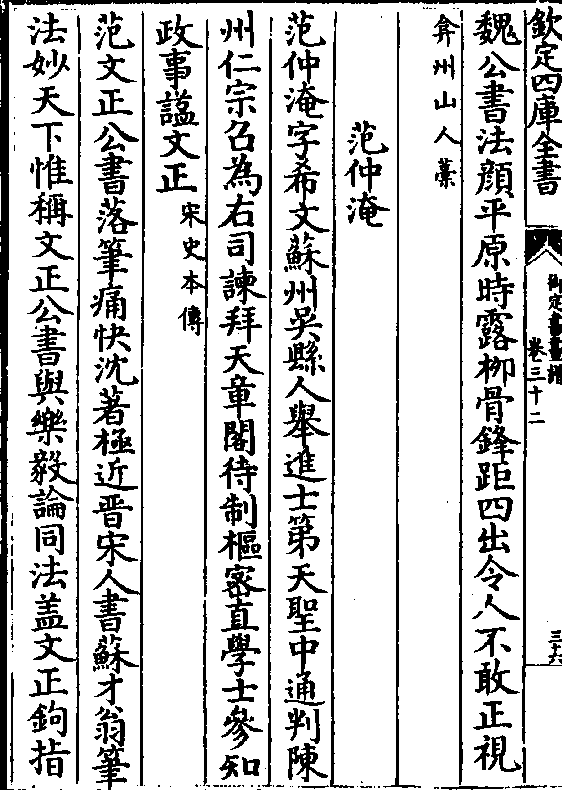 欽定四庫全書
御定書畫譜
卷三十二
三十六
魏公書法顔平原時露柳骨鋒距四出令人不敢正視
弇州山人藁
范仲淹
范仲淹字希文蘇州吳縣人舉進士第天聖中通判陳
州仁宗召為右司諫拜天章閣待制樞宻直學士參知
政事諡文正宋史本傳
范文正公書落筆痛快沈著極近晋宋人書蘇才翁筆
法妙天下惟稱文正公書與樂毅論同法盖文正鉤指